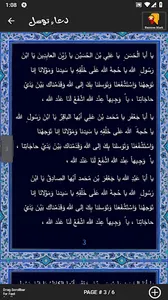 1:08
58%
دعاء توسل
يَا أَبَا الْحَسَنِ يَا عَلِيَّ بْنَ الْحُسَيْنِ يَا زَيْنَ الْعَابِدِينَ يَا ابْنَ
رَسُولِ اللهِ يَا حُجَّةَ اللهِ عَلَى خَلْقِهِ يَا سَيِّدَنَا وَمَوْلَانَا إِنَّا
تَوَجَّهْنَا وَاسْتَشْفَعْنَا وَتَوَسَّلْنَا بِكَ إِلَى اللهِ وَقَدَّمْنَاكَ بَيْنَ يَدَيْ
حَاجَاتِنَا يَا وَجِيهاً عِنْدَ اللهِ اشْفَعْ لَنَا عِنْدَ اللهِ
يَا أَبَا جَعْفَرٍ يَا مُحَمَّدَ بْنَ عَلِيٍّ أَيُّهَا الْبَاقِرُ يَا ابْنَ
رَسُولِ اللهِ يَا حُجَّةَ اللهِ عَلَى خَلْقِهِ يَا سَيِّدَنَا وَمَوْلَانَا إِنَّا تَوَجَّهْنَا
وَاسْتَشْفَعْنَا وَتَوَسَّلْنَا بِكَ إِلَى اللهِ وَقَدَّمْنَاكَ بَيْنَ يَدَيْ
حَاجَاتِنَا يَا وَجِيهاً عِنْدَ اللهِ اشْفَعْ لَنَا عِنْدَ اللهِ
يَا أَبَا عَبْدِ اللهِ يَا جَعْفَرَ بْنَ مُحَمَّدٍ أَيُّهَا الصَّادِقُ يَا ابْنَ
رَسُولِ اللهِ يَا حُجَّةَ اللهِ عَلَى خَلْقِهِ يَا سَيِّدَنَا وَمَوْلَانَا إِنَّا
تَوَجَّهْنَا وَاسْتَشْفَعْنَا وَتَوَسَّلْنَا بِكَ إِلَى اللهِ وَقَدَّمْنَاكَ بَيْنَ يَدَيْ
حَاجَاتِنَا يَا وَجِيهاً عِنْدَ اللهِ اشْفَعْ لَنَا عِنْدَ اللهِ
3
Drag Scrollbar
PAGE # 3 / 6